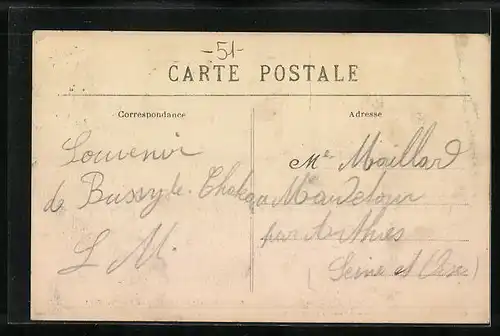 -51-
CARTE POSTALE
Correspondance
Adresse
Souvenir
de Bussy le Chateau
L M.
Me Maillard
Maudetour
par Arthies
(Seine et Oise)